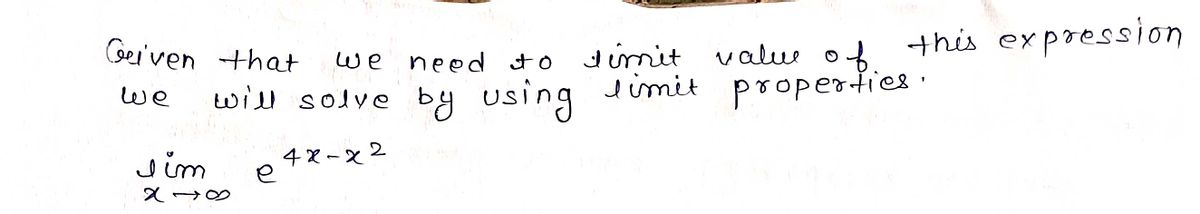 Given that we need to limit value of this expression
we will solve by using limit properties.
lim e^{4x-x^2}
x→∞